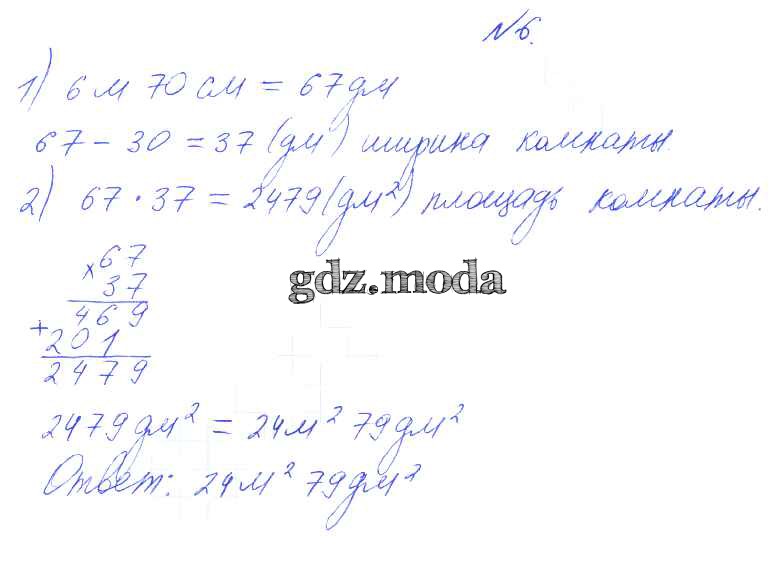 №6.
1) 6 м 70 см = 67 дм
67 - 30 = 37 (дм) ширина комнаты.
2) 67 · 37 = 2479 (дм²) площадь комнаты.
× 67
37
gdz.moda
469
+
201
2479
2479 дм² = 24 м² 79 дм²
Ответ: 24 м² 79 дм²